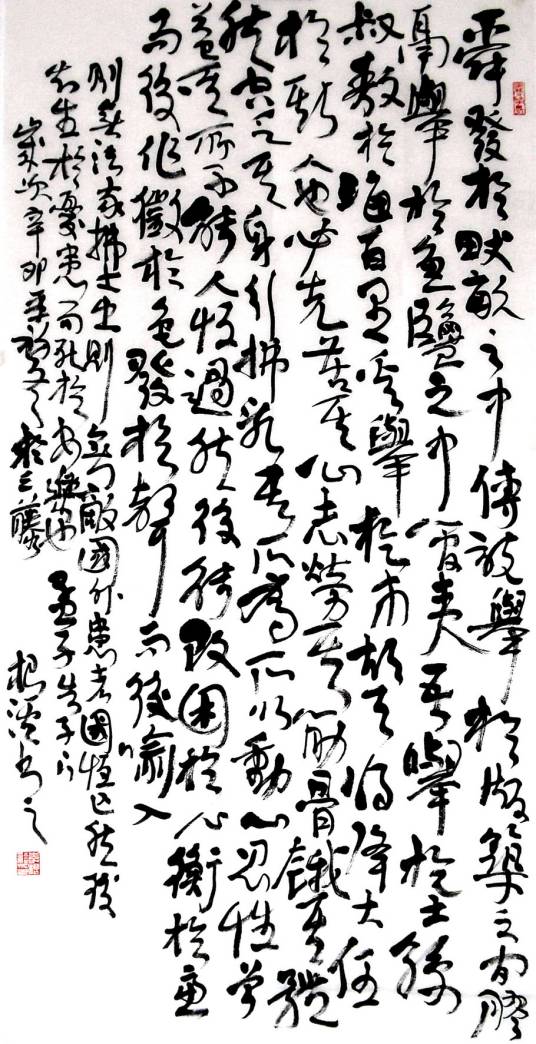 舜發於畎畝之中傅說舉於版築之間膠
鬲舉於魚鹽之中管夷吾舉於士孫
叔敖於海百里奚舉於市故天將降大任
於斯人也必先苦其心志勞其筋骨餓其體
膚空乏其身行拂亂其所為所以動心忍性曾
益其所不能人恆過然後能改困於心衡於慮
而後作徵於色發於聲而後喻入
則無法家拂士出則無敵國外患者國恆亡然後
知生於憂患而死於安樂也 孟子告子下
歲次辛卯
書之